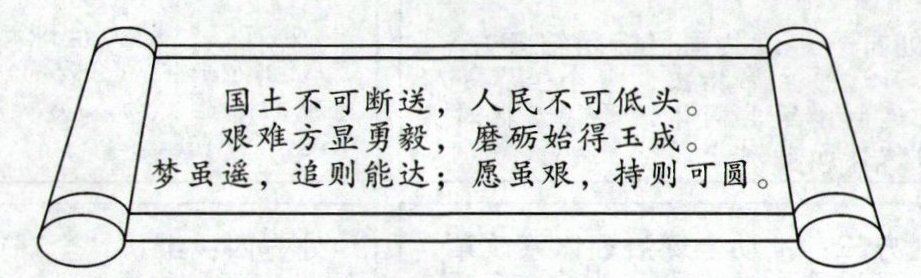 国土不可断送，人民不可低头。
艰难方显勇毅，磨砺始得玉成。
梦虽遥，追则能达；愿虽艰，持则可圆。